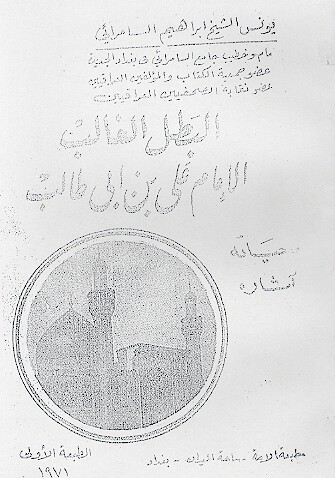 يونس الشيخ ابراهيم السامرائي
إمام وخطيب جامع السامرائي في بغداد الجديدة
عضو جمعية الكتاب والمؤلفين العراقيين
عضو نقابة الصحفيين العراقيين
البطل الغالب
الإمام علي بن ابي طالب
حياته
آثاره
الطبعة الأولى
١٩٧١
مطبعة الأمة - ساحة الميدان - بغداد